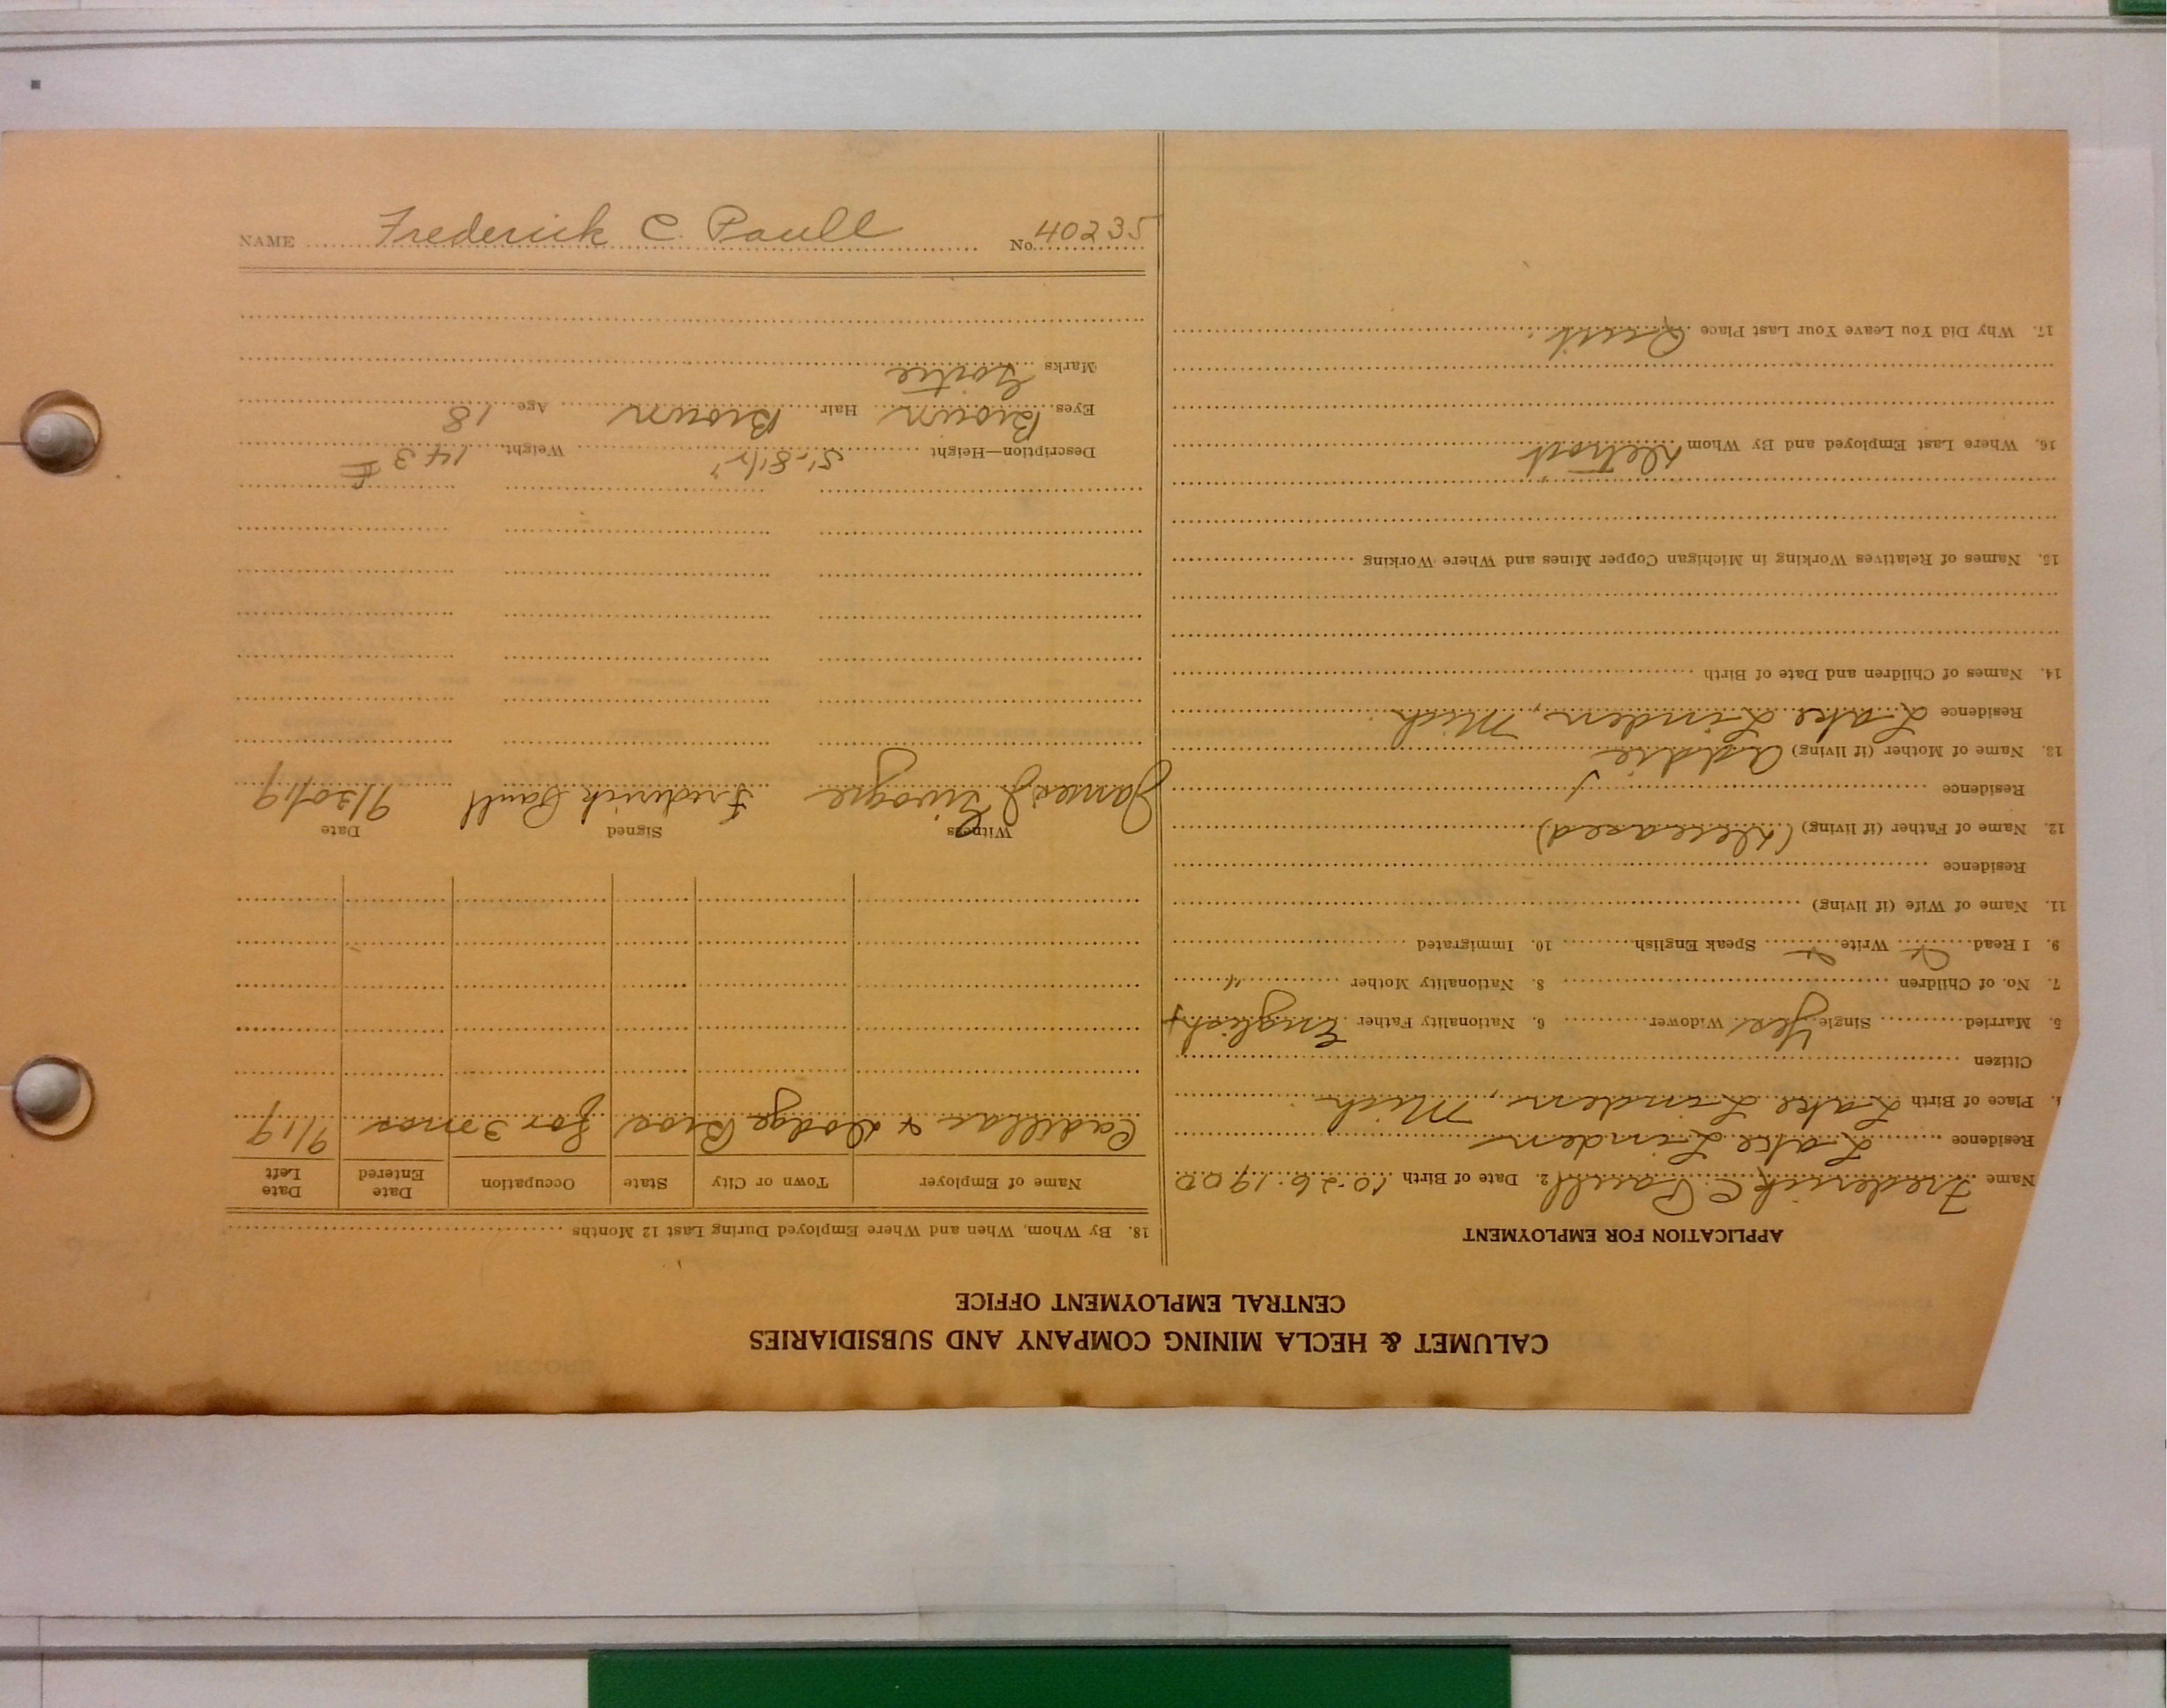 CALUMET & HECLA MINING COMPANY AND SUBSIDIARIES
CENTRAL EMPLOYMENT OFFICE
APPLICATION FOR EMPLOYMENT
Name Frederick C Paull 2. Date of Birth 10-26-1900
Residence Lake Linden
Place of Birth Lake Linden, Mich.
Citizen
5. Married Single Yes Widower 6. Nationality Father English
7. No. of Children 8. Nationality Mother "
9. I Read Write Speak English 10. Immigrated
11. Name of Wife (if living)
Residence
12. Name of Father (if living) (Deceased)
Residence
13. Name of Mother (if living) Addie
Residence Lake Linden, Mich.
14. Names of Children and Date of Birth
15. Names of Relatives Working in Michigan Copper Mines and Where Working
16. Where Last Employed and By Whom Detroit
17. Why Did You Leave Your Last Place Quit.
18. By Whom, When and Where Employed During Last 12 Months
Name of Employer Town or City State Occupation Date Entered Date Left
Cadillac & Dodge Bros for 3 mos 9/19
Witness Signed Date
James J Frederick Paull 9/30/19
Description—Height 5'-8 1/2" Weight 143 #
Eyes Brown Hair Brown Age 18
Marks Goitre
NAME Frederick C. Paull No. 40235